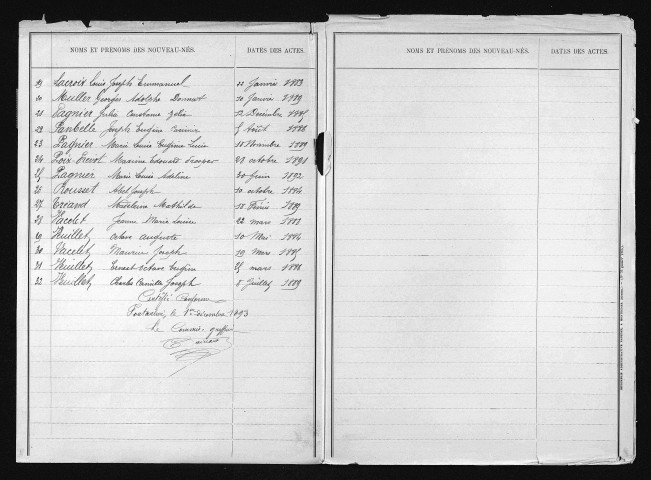 NOMS ET PRÉNOMS DES NOUVEAU-NÉS. DATES DES ACTES.
19 Lacroix Louis Joseph Emmanuel 22 Janvier 1883
20 Muller Georges Adolphe Donnat 20 Janvier 1889
21 Pagnier Julie Constance Zélie 2 Décembre 1885
22 Panbelle Joseph Eugène 5 Août 1886
23 Pagnier Marie Louis Eugène 18 Novembre 1889
24 Poix-Prevot Maxime Edouard 21 octobre 1891
25 Pagnier Marie Louis Adeline 30 Juin 1892
26 Rousset Abel Joseph 10 octobre 1884
27 Tréand Madeleine Mathilde 18 Février 1889
28 Vacelet Jeanne Marie Louise 22 mars 1883
29 Vuillet octave auguste 10 Mai 1884
30 Vacelet Maurice Joseph 19 Mars 1885
31 Vuillet Ernest octave Eugène 25 mars 1886
32 Vuillet Charles Camille Joseph 8 Juillet 1889
Certifié Conforme
Pontarlier, le 1er Décembre 1893
Le Commis-greffier
NOMS ET PRÉNOMS DES NOUVEAU-NÉS. DATES DES ACTES.